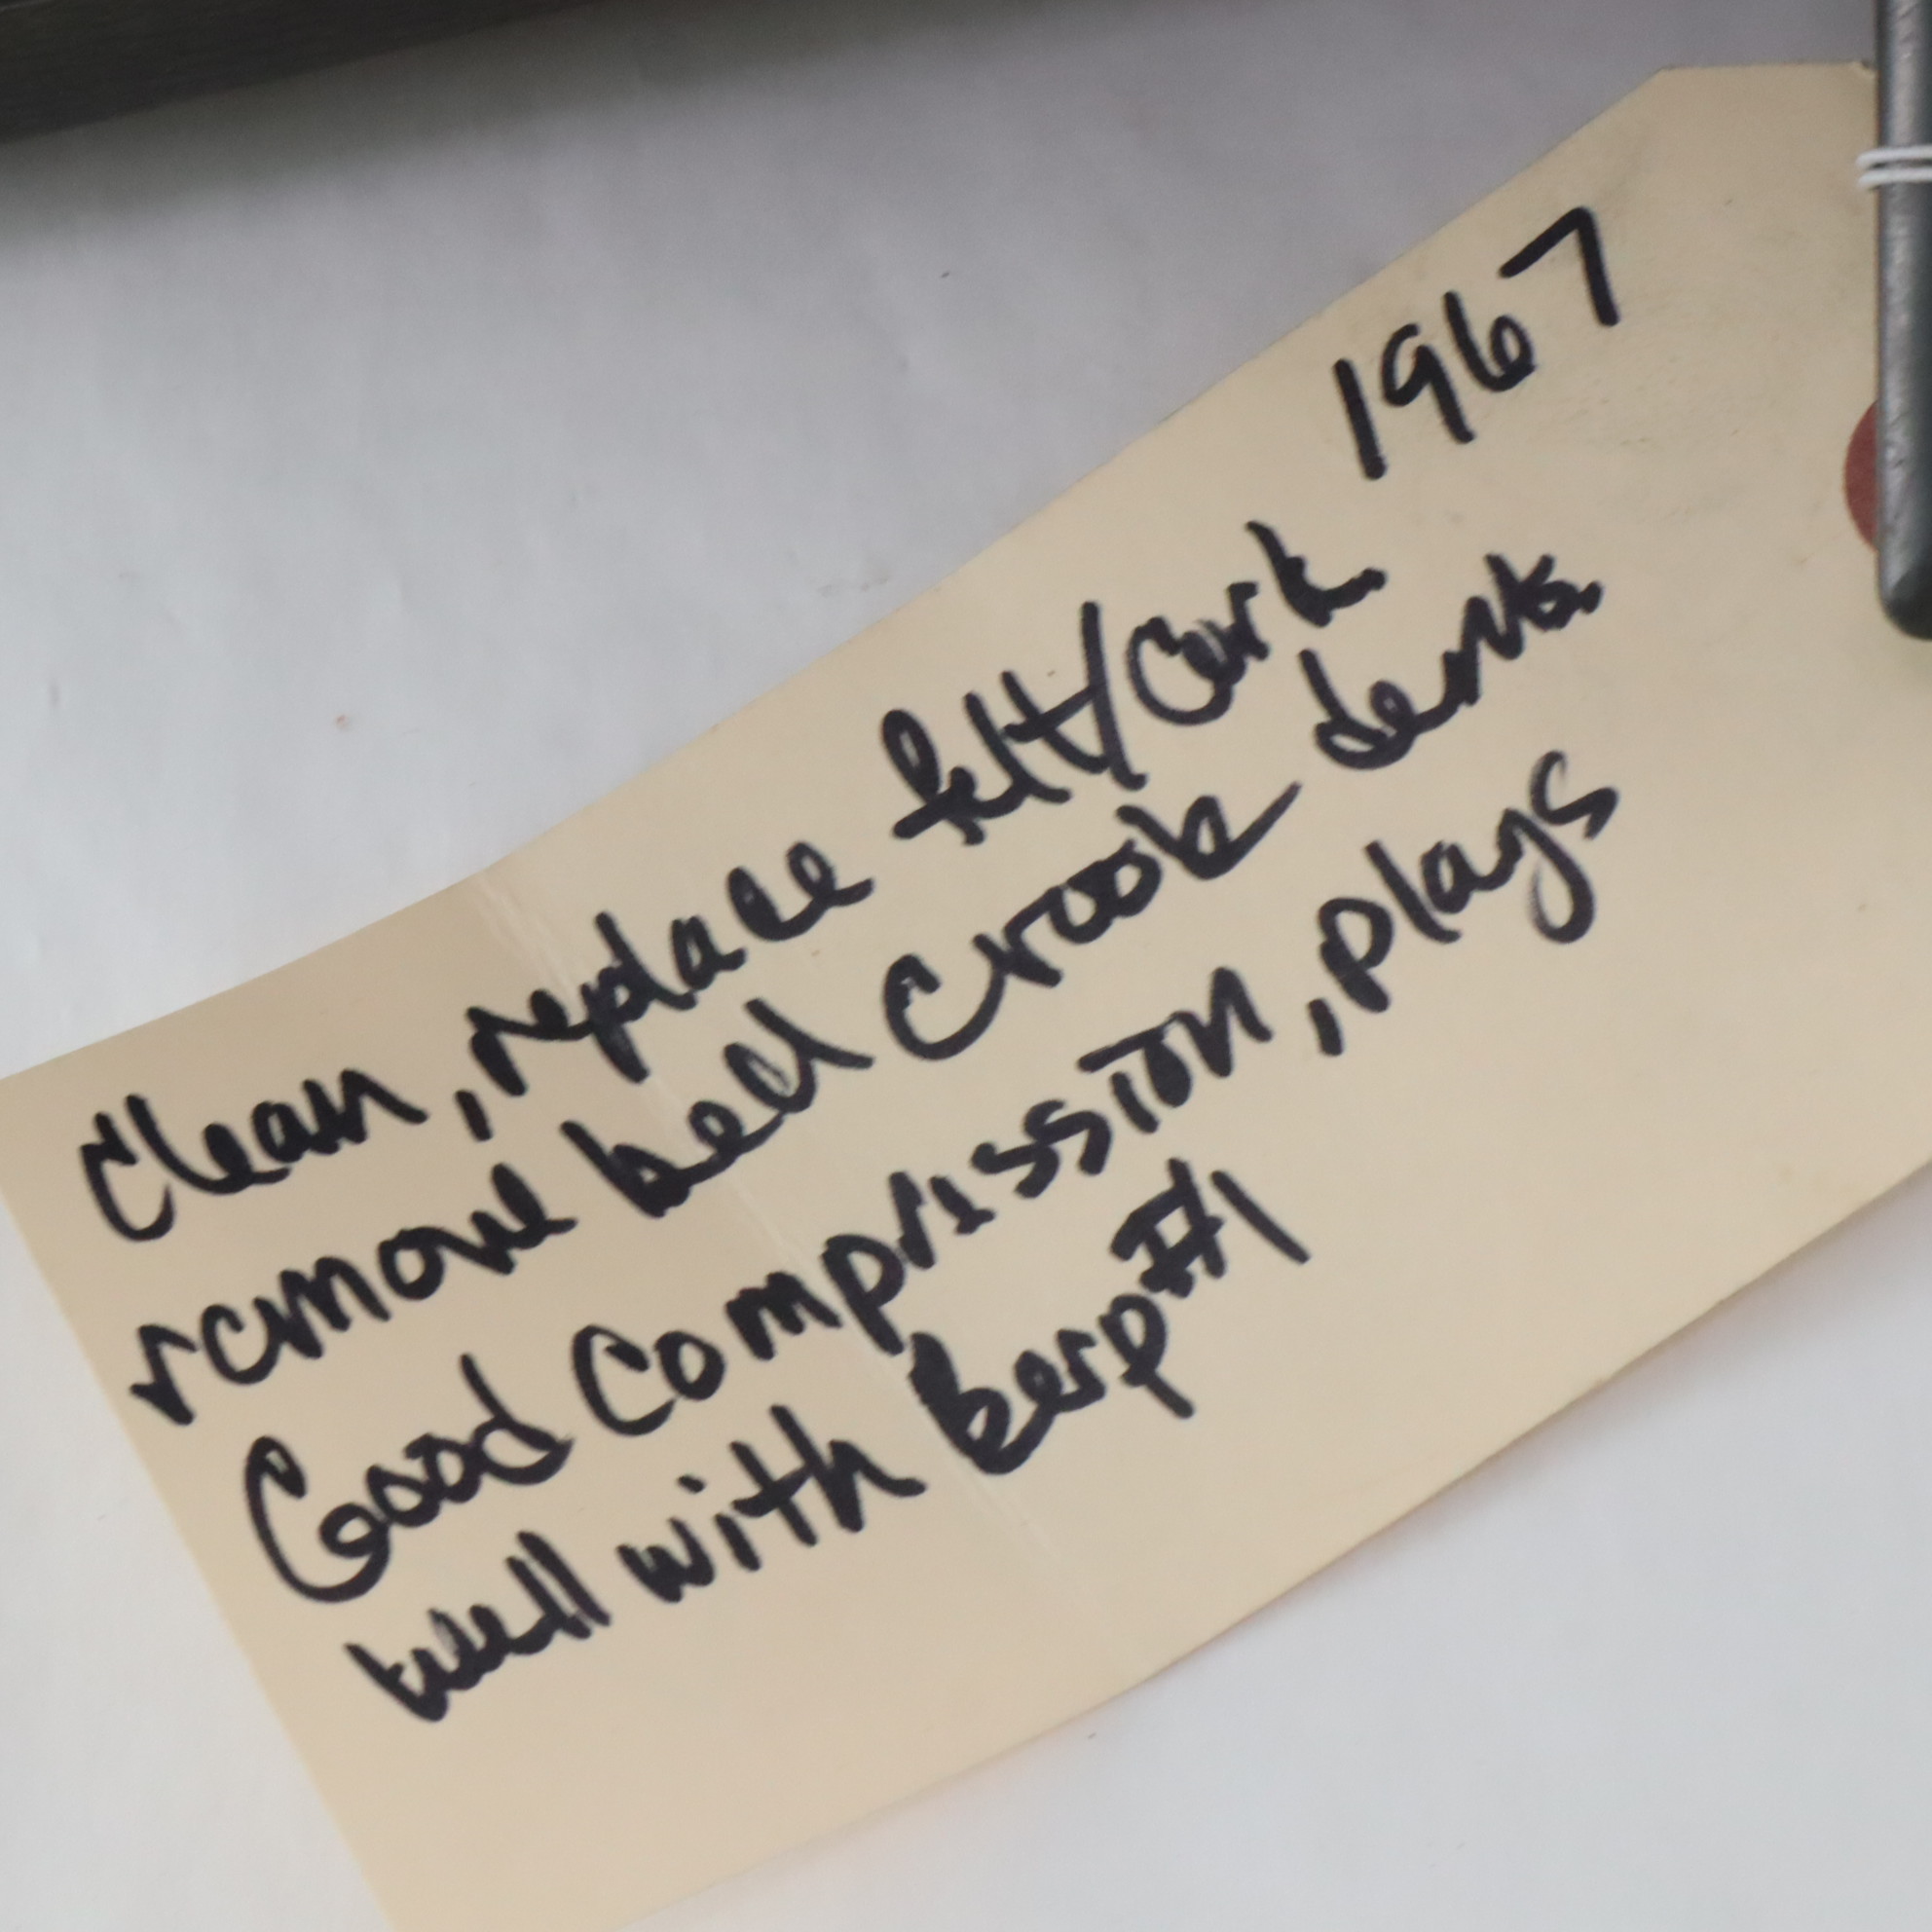 1967
Clean, replace felt/Cork
remove bell crook dents
Good Compression, plays
well with Berp #1